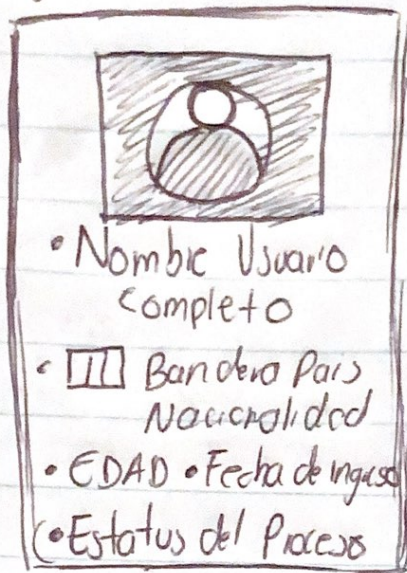 • Nombre Usuario
completo
• Bandera País
Nacionalidad
• EDAD • Fecha de ingreso
• Estatus del Proceso